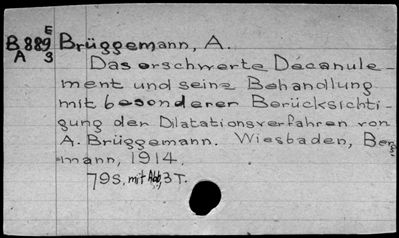 E
B 889 Brüggemann, A.
A 3
Das erschwerte Décanule-
ment und seine Behandlung
mit besonderer Berücksichti-
gung der Dilatationsverfahren von
A. Brüggemann. Wiesbaden, Berg-
mann, 1914.
79 S. mit Abb., 3 T.